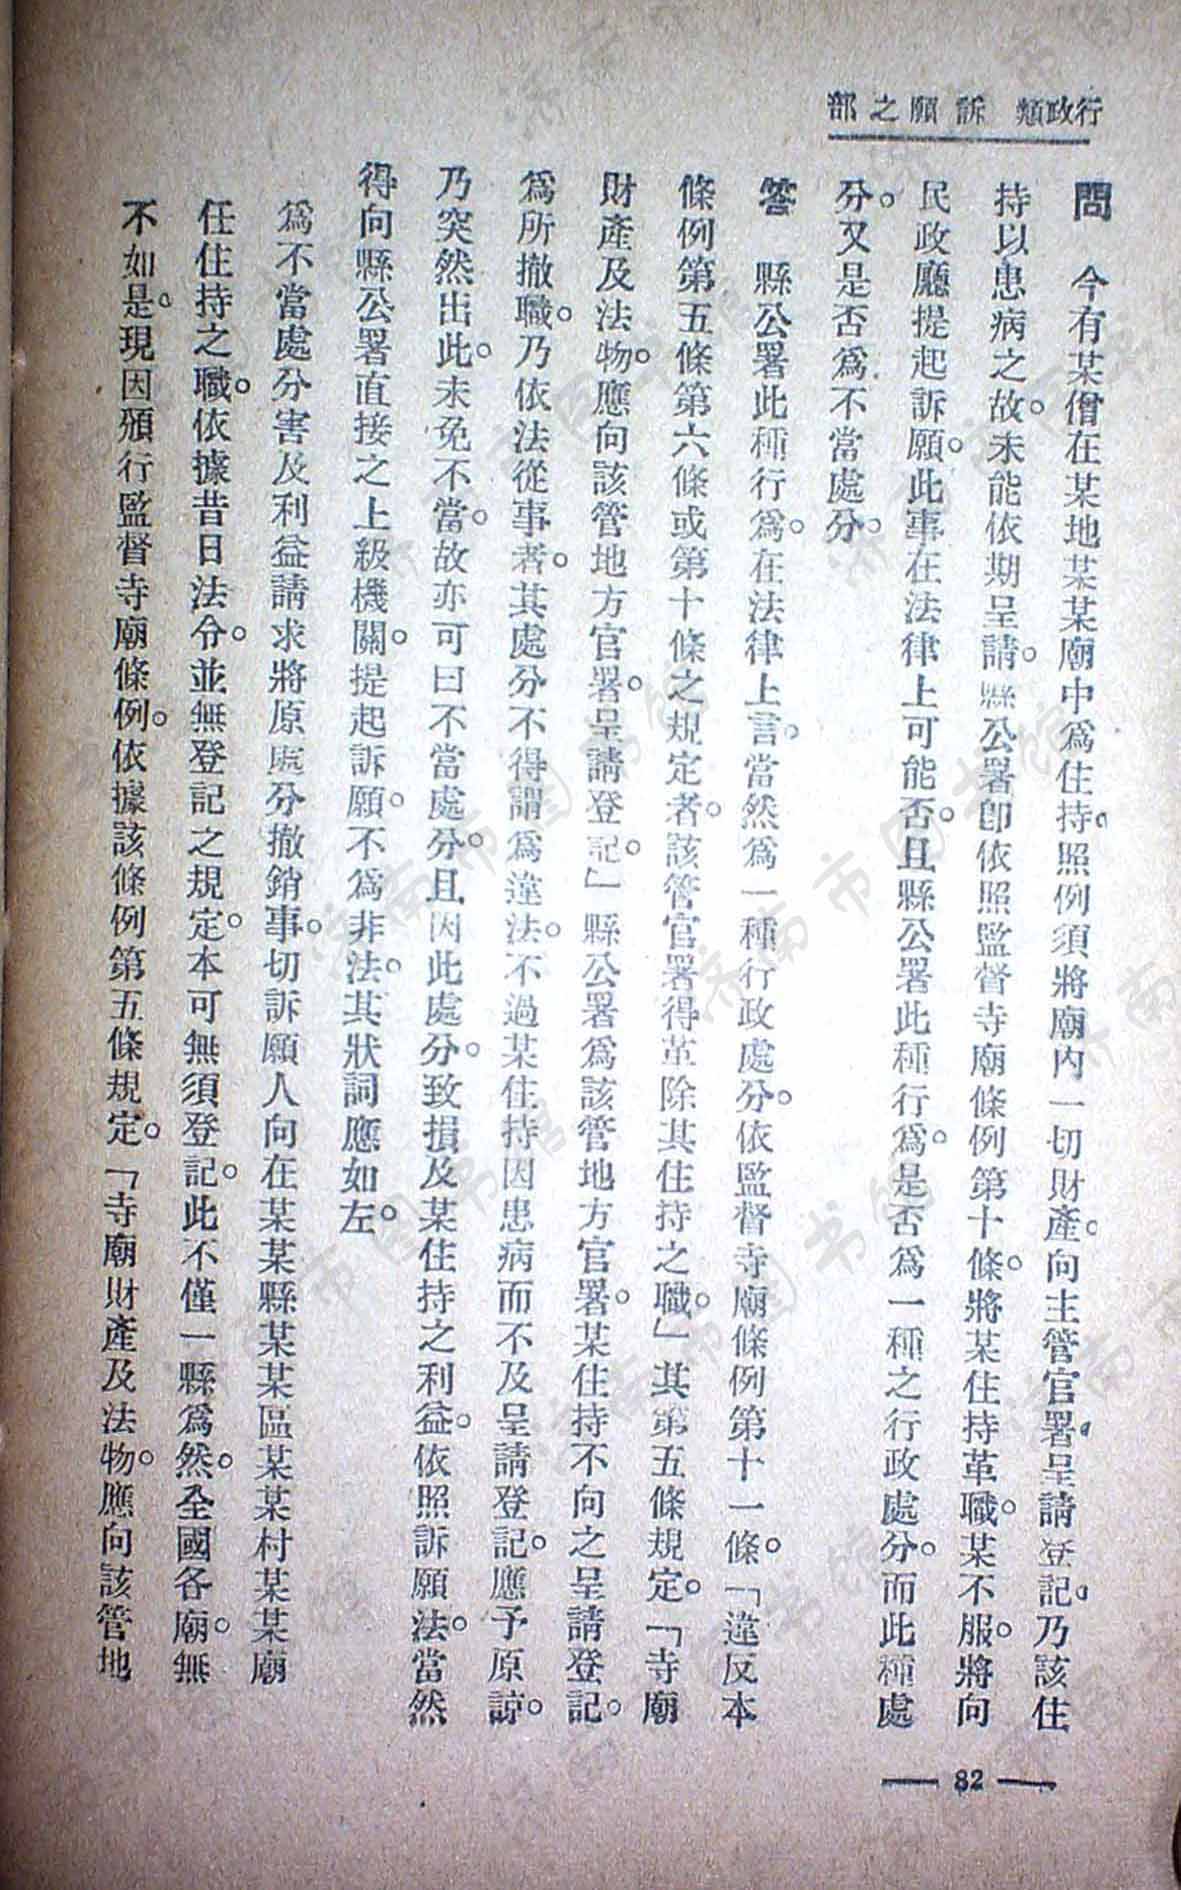 行政類 訴願之部
問　今有某僧在某地某某廟中爲住持。照例須將廟內一切財產。向主管官署。呈請登記。乃該住
持以患病之故。未能依期呈請。縣公署卽依照監督寺廟條例第十條。將某住持革職。某不服。將向
民政廳提起訴願。此事在法律上可能否。且縣公署此種行爲。是否爲一種之行政處分。而此種處
分。又是否爲不當處分。
答　縣公署此種行爲。在法律上言。當然爲一種行政處分。依監督寺廟條例第十一條。「違反本
條例第五條第六條或第十條之規定者。該管官署得革除其住持之職。」其第五條規定。「寺廟
財產及法物。應向該管地方官署。呈請登記。」縣公署爲該管地方官署。某住持不向之呈請登記。
爲所撤職。乃依法從事者。其處分不得謂爲違法。不過某住持因患病而不及呈請登記。應予原諒。
乃突然出此。未免不當。故亦可曰不當處分。且因此處分。致損及某住持之利益。依照訴願法。當然
得向縣公署直接之上級機關。提起訴願。不爲非法。其狀詞應如左。
爲不當處分害及利益請求將原處分撤銷事。切訴願人向在某某縣某某區某某村某某廟
任住持之職。依據昔日法令。並無登記之規定。本可無須登記。此不僅一縣爲然。全國各廟。無
不如是。現因頒行監督寺廟條例。依據該條例第五條規定。「寺廟財產及法物。應向該管地
82
济南市图书馆